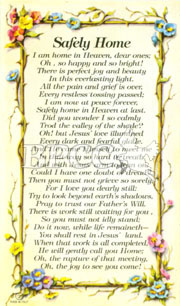 Safely Home
I am home in Heaven, dear ones;
Oh, so happy and so bright!
There is perfect joy and beauty
In this everlasting light.
All the pain and grief is over,
Every restless tossing passed;
I am now at peace forever,
Safely home in Heaven at last.
Did you wonder I so calmly
Trod the valley of the shade?
Oh! but Jesus' love illumined
Every dark and fearful glade.
And
Could I have one doubt or dread?
Then you must not grieve so sorely,
For I love you dearly still:
Try to look beyond earth's shadows,
Pray to trust our Father's Will.
There is work still waiting for you,
So you must not idly stand;
Do it now, while life remaineth—
You shall rest in Jesus' land.
When that work is all completed,
He will gently call you Home;
Oh, the rapture of that meeting,
Oh, the joy to see you come!